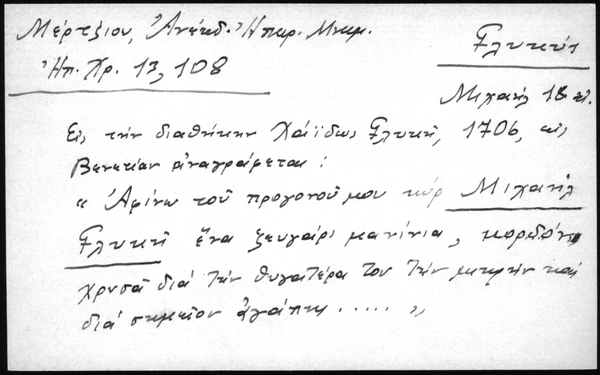 Μέρτζιου, Ἀνέκδ. Ἠπειρ. Μνημ.
Ἠπ. Χρ. 13, 108
Γλυκύς
Μιχαήλ 18 αἰ.
Εἰς τήν διαθήκην Χάϊδως Γλυκῆ, 1706, εἰς
Βενετίαν ἀναγράφεται:
« Ἀφίνω τοῦ προγονοῦ μου κύρ Μιχαήλ
Γλυκῆ ἕνα ζευγάρι μανίνια, κορδόνι
χρυσᾶ διά τήν θυγατέρα του τήν μικρήν καί
διά σημεῖον ἀγάπης ..... »